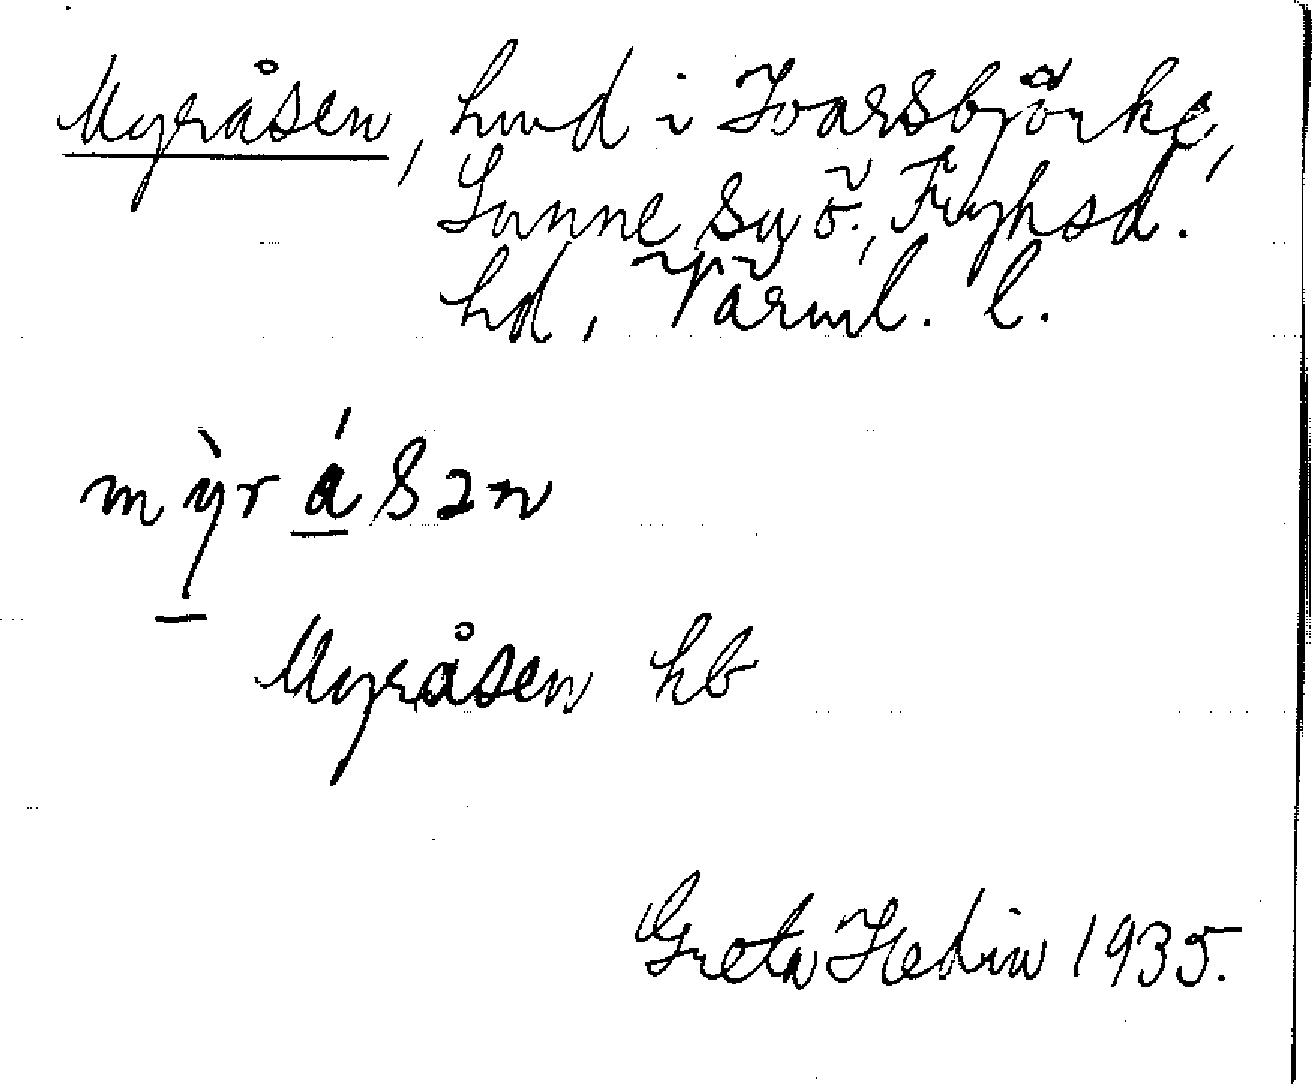 Myråsen, hmd i Ivarsbjörke,
Sunne sn ö., Fryksd.
hd, Värml. l.
mỳrásən
Myråsen hb
Greta Hedin 1935.